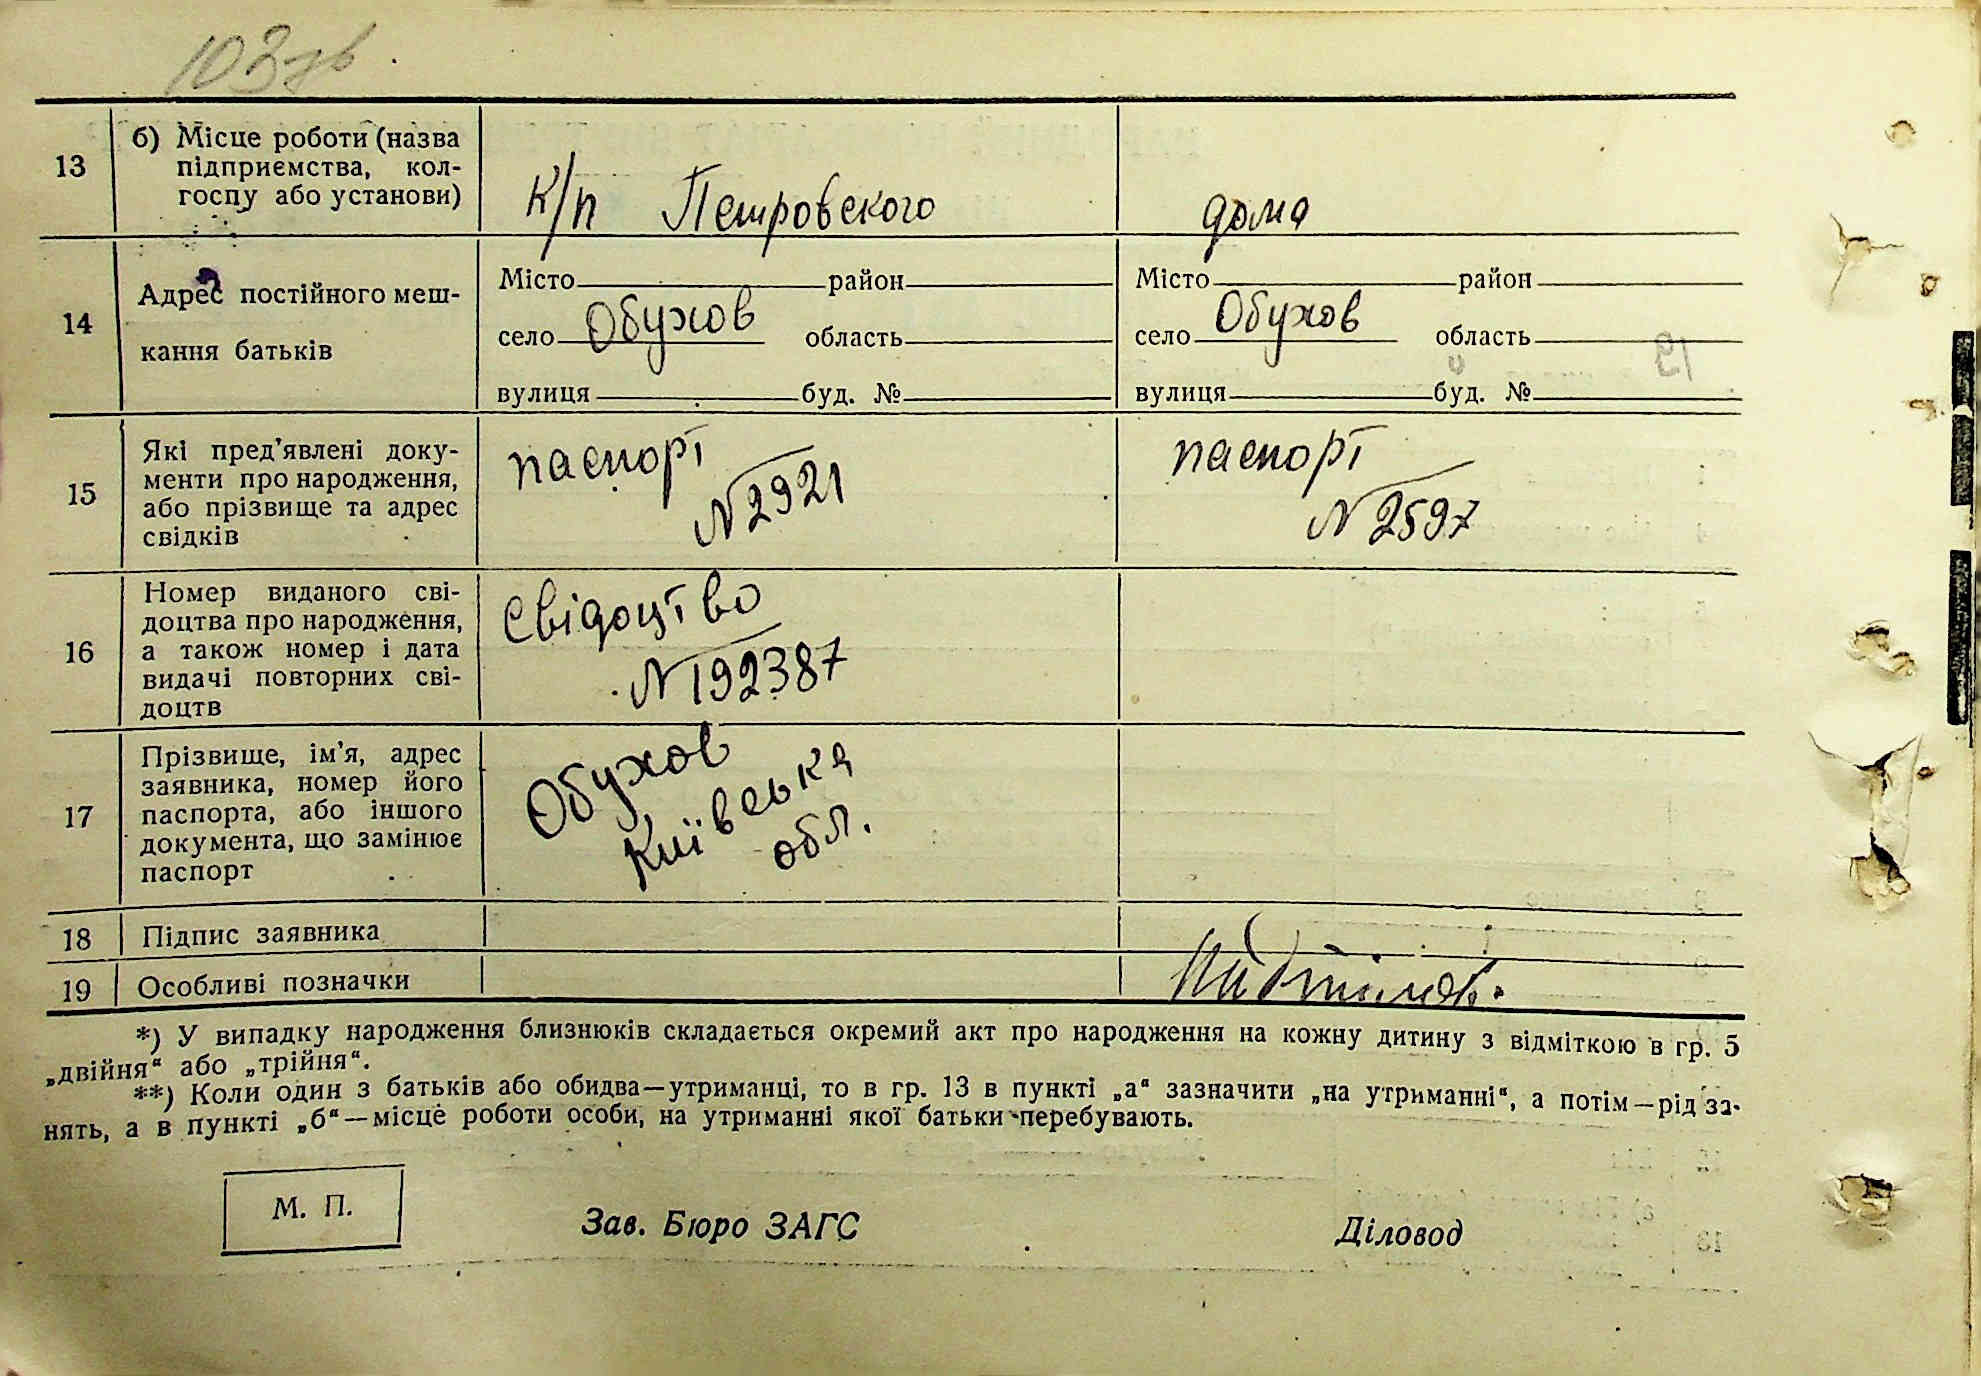 103 зв.
13
б) Місце роботи (назва
підприємства, кол-
госпу або установи)
к/п Петровского
дома
14
Адрес постійного меш-
кання батьків
Місто район
село Обухов область
вулиця буд. №
Місто район
село Обухов область
вулиця буд. №
15
Які пред'явлені доку-
менти про народження,
або прізвище та адрес
свідків
паспорт
№ 2921
паспорт
№ 2597
16
Номер виданого сві-
доцтва про народження,
а також номер і дата
видачі повторних сві-
доцтв
Свідоцтво
№ 192387
17
Прізвище, ім'я, адрес
заявника, номер його
паспорта, або іншого
документа, що замінює
паспорт
Обухов
Київська
обл.
18
Підпис заявника
19
Особливі позначки
*) У випадку народження близнюків складається окремий акт про народження на кожну дитину з відміткою в гр. 5
„двійня“ або „трійня“.
**) Коли один з батьків або обидва—утриманці, то в гр. 13 в пункті „а“ зазначити „на утриманні“, а потім—рід за-
нять, а в пункті „б“—місце роботи особи, на утриманні якої батьки перебувають.
М. П.
Зав. Бюро ЗАГС
Діловод